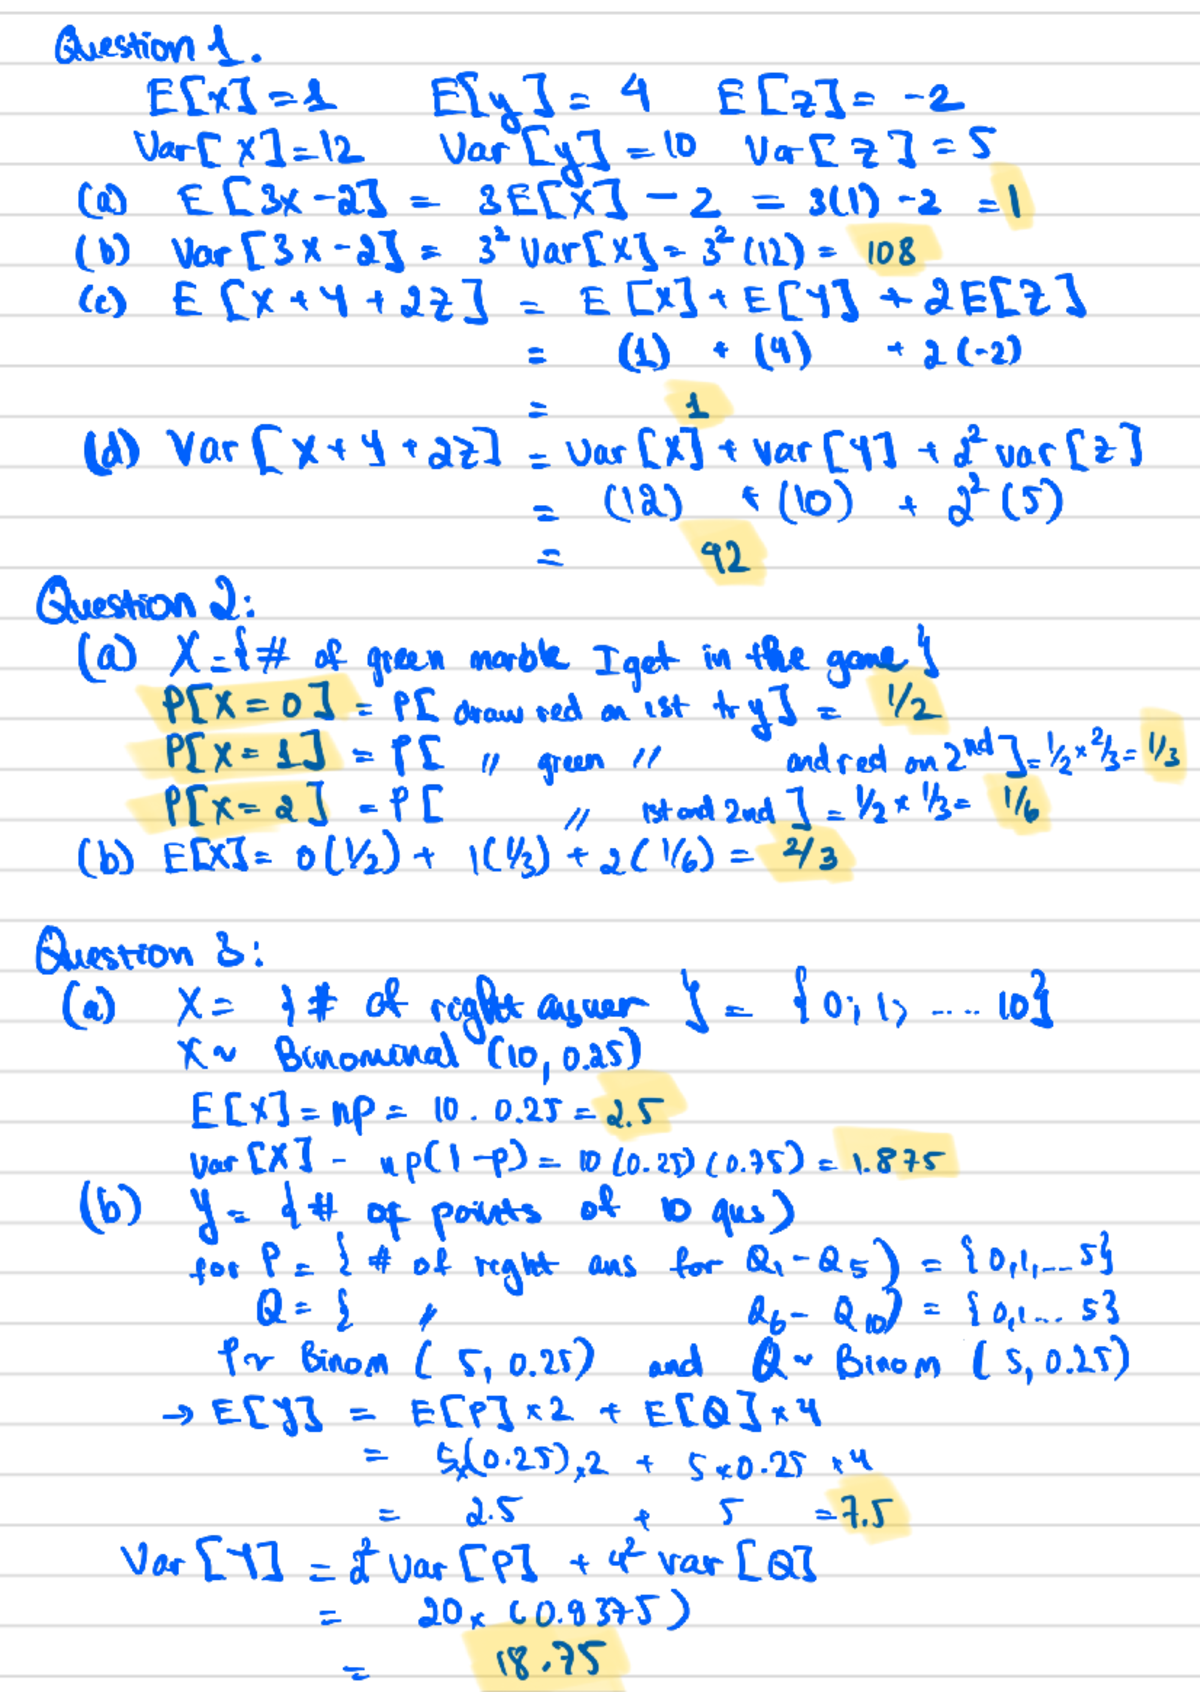 Question 1.
E[x]=1 E[y]= 4 E[z]= -2
Var[x]=12 Var[y]=10 Var[z]=5
(a) E[3x-2] = 3E[X] - 2 = 3(1)-2 =1
(b) Var[3x-2] = 3² Var[X] = 3²(12) = 108
(c) E[X+Y+2z] = E[X]+E[Y]+2E[Z]
= (1) + (4) + 2(-2)
= 1
(d) Var[X+Y+2z] = Var[X]+Var[Y]+2² var[z]
= (12) + (10) + 2²(5)
= 92
Question 2:
(a) X={# of green marble I get in the game}
P[X=0] = P[draw red on 1st try] = 1/2
P[X=1] = P[ " green " and red on 2nd] = 1/2 x 2/3 = 1/3
P[X=2] = P[ " 1st and 2nd] = 1/2 x 1/3 = 1/6
(b) E[X]= 0(1/2) + 1(1/3) + 2(1/6) = 2/3
Question 3:
(a) X = {# of right answer} = {0, 1, .... 10}
X~ Binominal (10, 0.25)
E[X] = np = 10 . 0.25 = 2.5
Var[X] - np(1-p) = 10(0.25)(0.75) = 1.875
(b) Y= {# of points of 10 ques)
for P = {# of right ans for Q1-Q5) = {0,1,...5}
Q = { " Q6-Q10) = {0,1...5}
P~ Binom (5, 0.25) and Q~ Binom (5, 0.25)
→ E[Y] = E[P]x2 + E[Q]x4
= 5x(0.25)x2 + 5x0.25 x4
= 2.5 + 5 =7.5
Var[Y] = 2² Var[P] + 4² var[Q]
= 20x (0.9375)
= 18.75